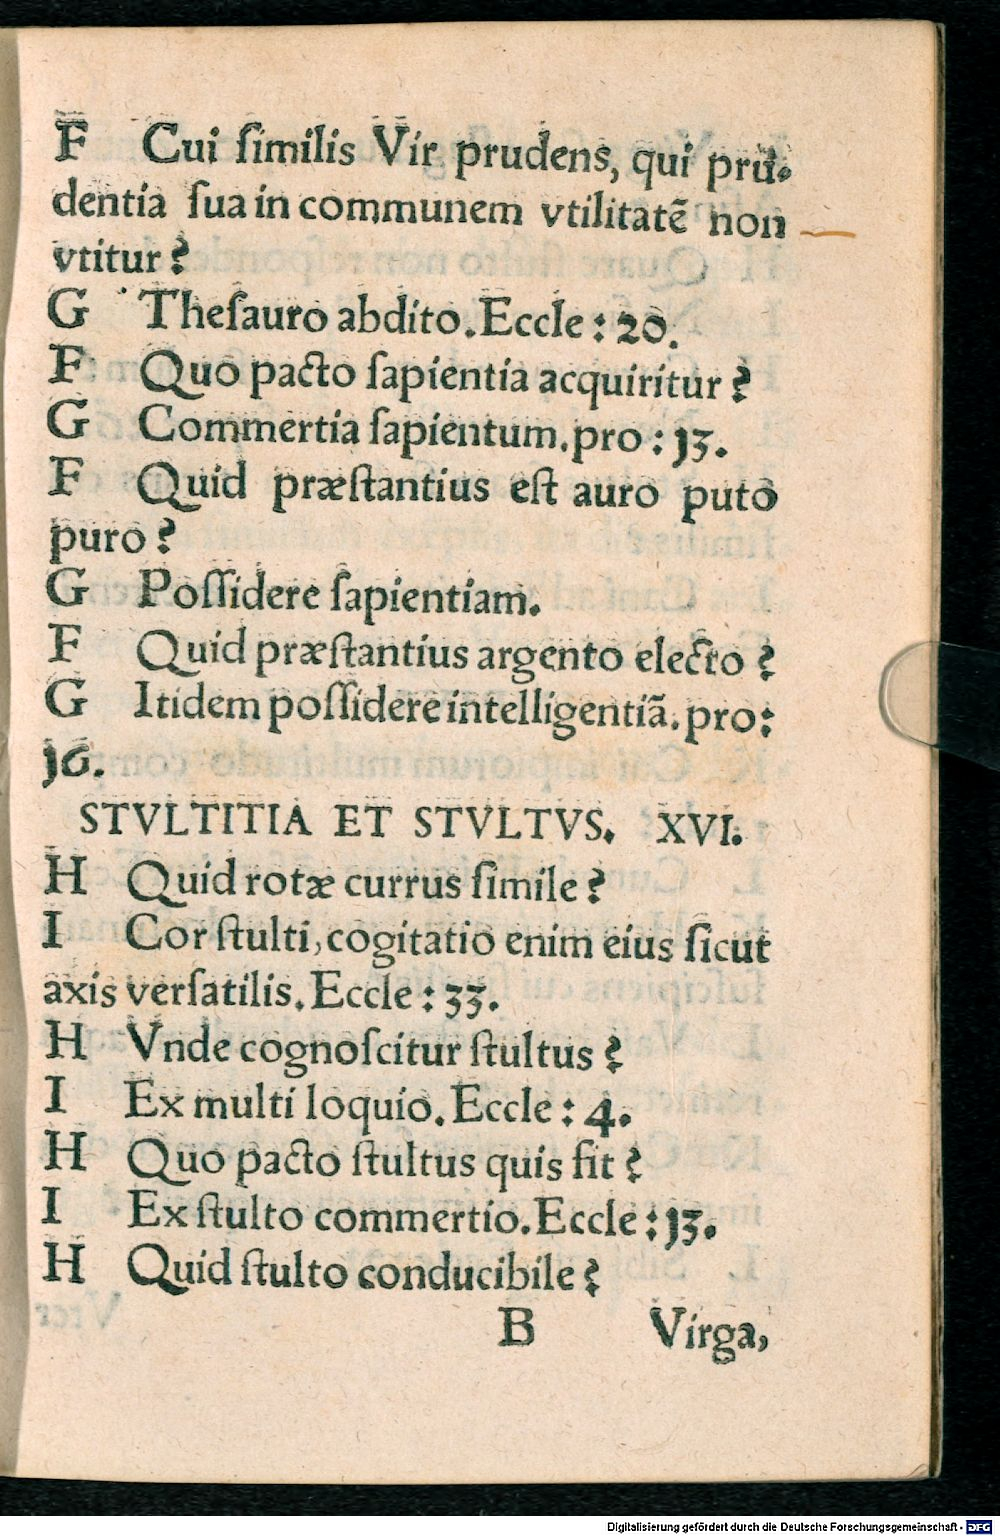 F Cui ſimilis Vir prudens, qui prũ-
dentia ſua in communem vtilitatẽ non
vtitur?
G Theſauro abdito. Eccle: 20.
F Quo pacto ſapientia acquiritur?
G Commertia ſapientum. pro: 13.
F Quid præſtantius eſt auro puto
puro?
G Poſſidere ſapientiam.
F Quid præſtantius argento electo?
G Itidem poſſidere intelligentiã. pro:
16.
STVLTITIA ET STVLTVS. XVI.
H Quid rotæ currus ſimile?
I Cor ſtulti, cogitatio enim eius ſicut
axis verſatilis. Eccle: 33.
H Vnde cognoſcitur ſtultus?
I Ex multi loquio. Eccle: 4.
H Quo pacto ſtultus quis fit?
I Ex ſtulto commertio. Eccle: 13.
H Quid ſtulto conducibile?
B Virga,
Digitalisierung gefördert durch die Deutsche Forschungsgemeinschaft - DFG